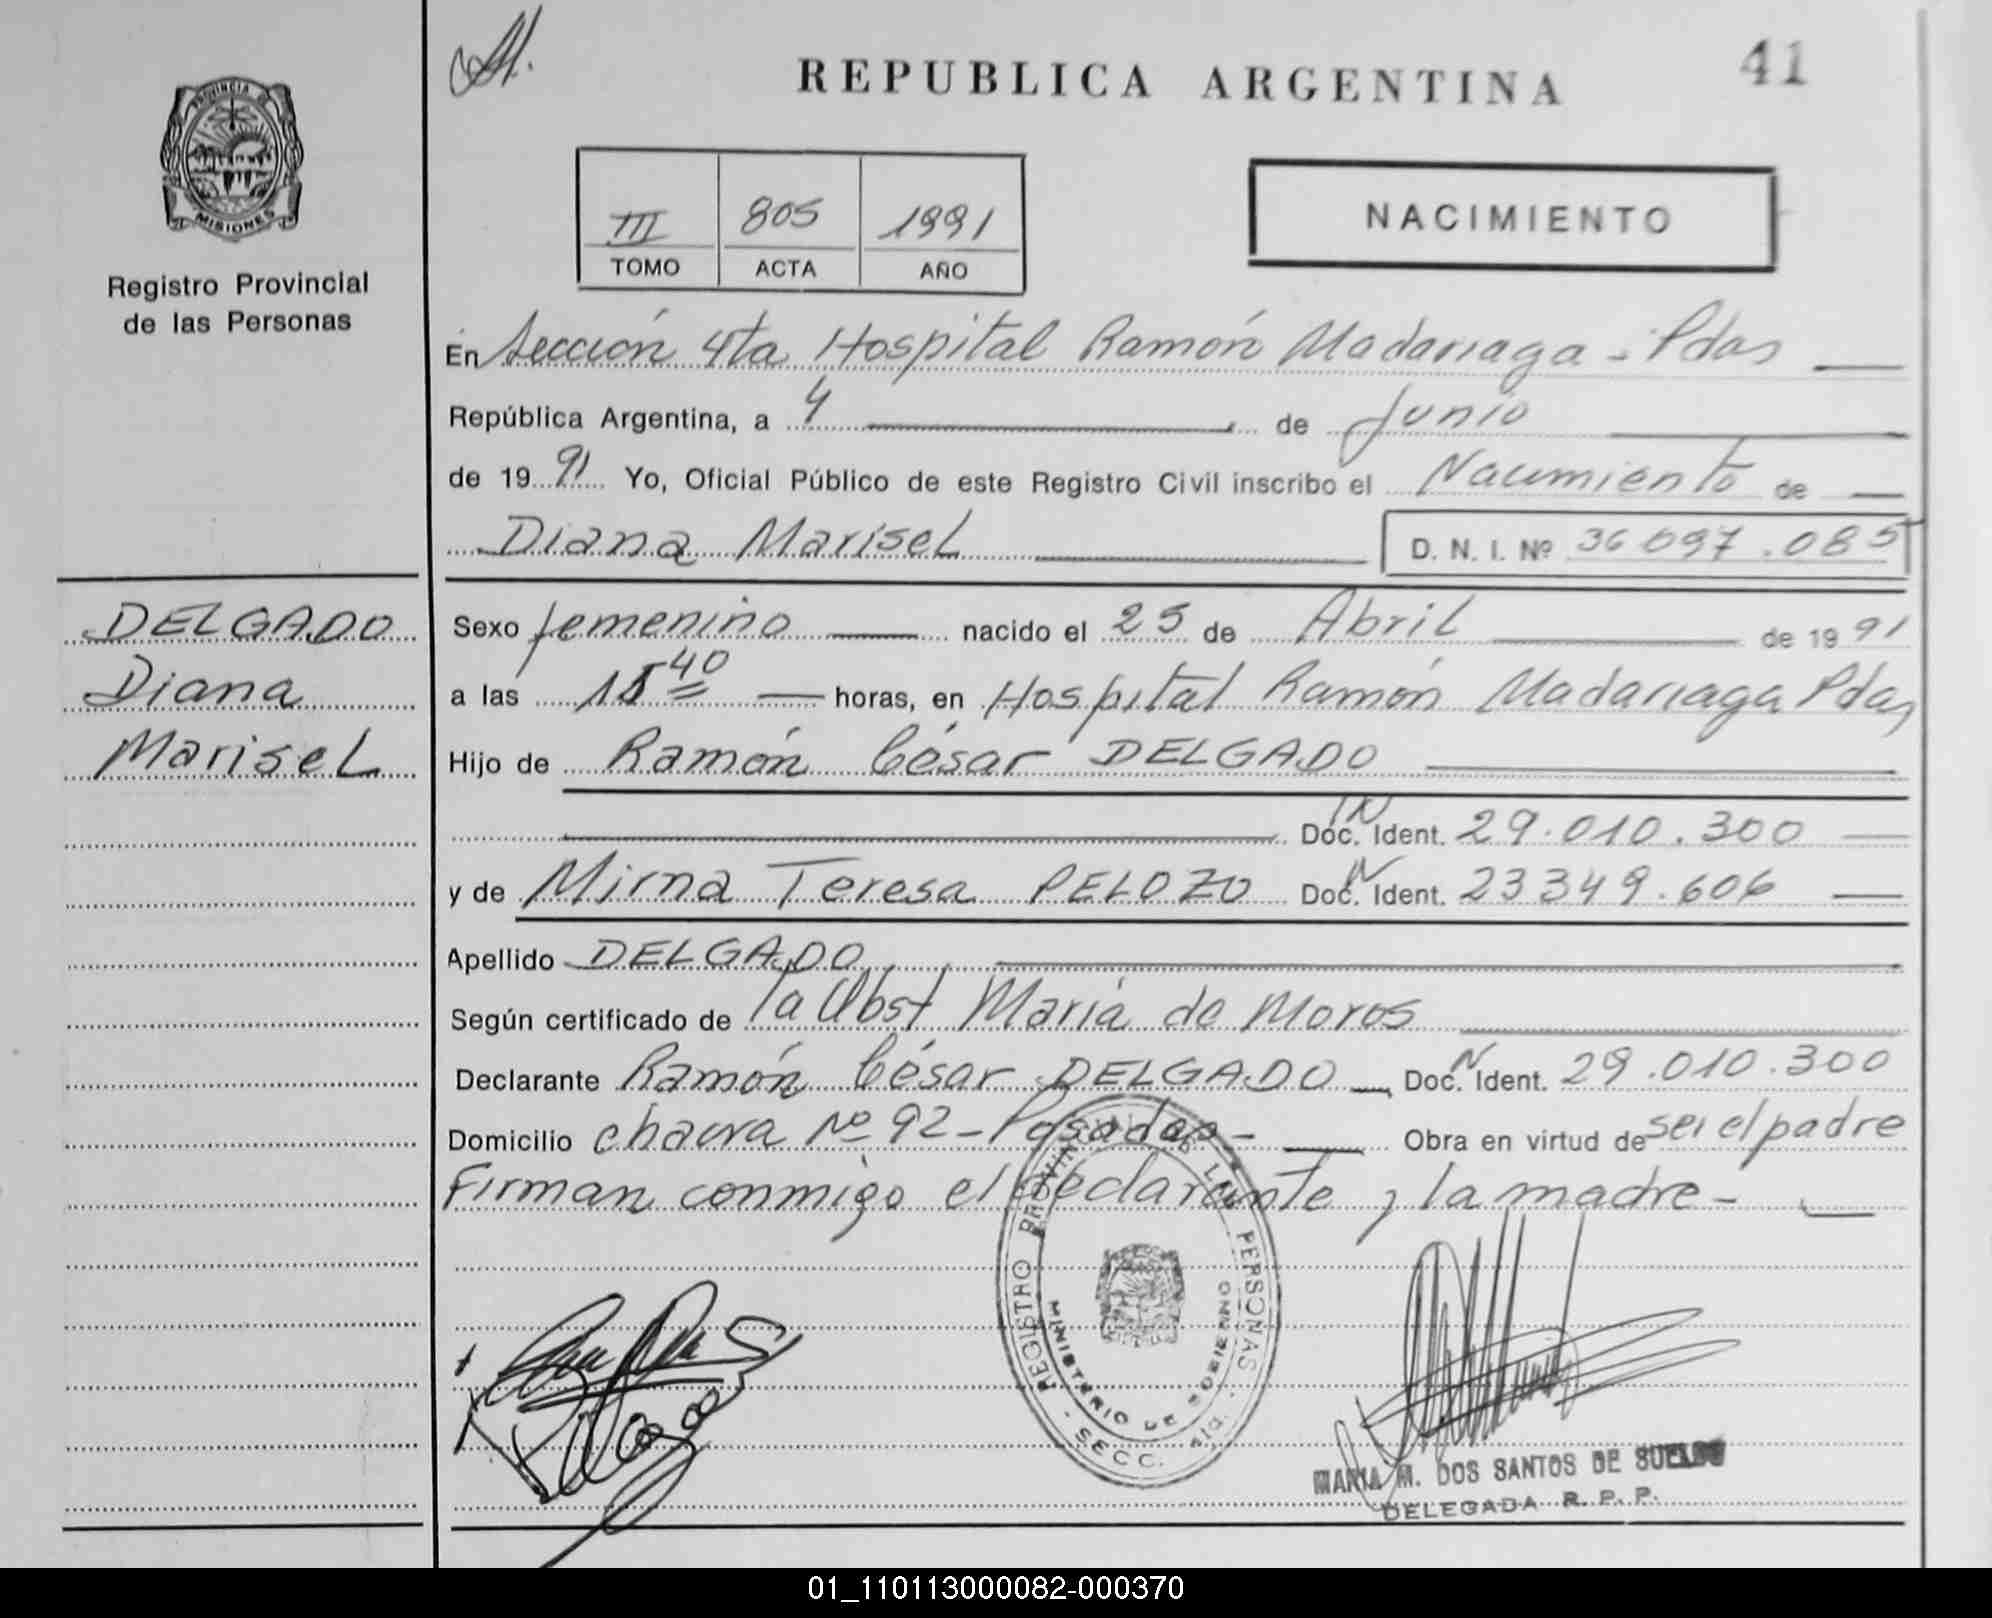 41
REPUBLICA ARGENTINA
PROVINCIA DE
MISIONES
Registro Provincial
de las Personas
III 805 1991
TOMO ACTA AÑO
NACIMIENTO
En Sección 4ta Hospital Ramón Madariaga - Pdas
República Argentina, a 4 de Junio
de 1991 Yo, Oficial Público de este Registro Civil inscribo el Nacimiento de
Diana Marisel D. N. I. Nº 36 097.085
DELGADO
Diana
Marisel
Sexo femenino nacido el 25 de Abril de 1991
a las 15 40 horas, en Hospital Ramón Madariaga Pdas
Hijo de Ramón César DELGADO
Doc. Ident. 29.010.300
y de Mirna Teresa PELOZO Doc. Ident. 23349.606
Apellido DELGADO
Según certificado de la Obst María de Moros
Declarante Ramón César DELGADO Doc. Ident. 29.010.300
Domicilio chacra Nº 92 - Posadas - Obra en virtud de ser el padre
Firman conmigo el declarante y la madre -
REGISTRO PROVINCIAL DE LAS PERSONAS
MINISTERIO DE GOBIERNO
SECC. 4ta.
MARIA M. DOS SANTOS DE SUELDO
DELEGADA R. P. P.
01_110113000082-000370